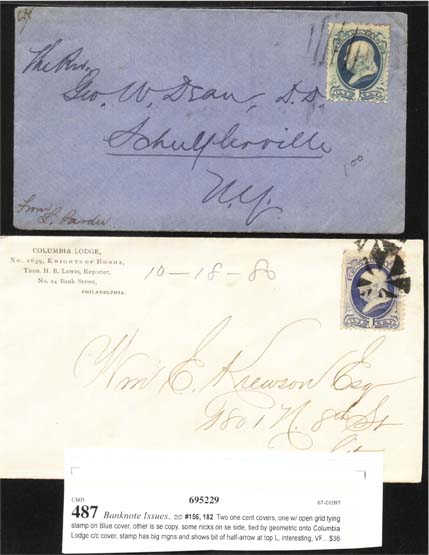 The Rev.
Geo. W. Dean, D.D.
Schuylerville
N.Y.
1.00
From
COLUMBIA LODGE,
No. 1639, KNIGHTS OF HONOR,
THOS. H. B. LEWIS, Reporter,
No. 24 Bank Street,
PHILADELPHIA.
10-18-80
Wm E. Krewson Esq
N. 8th St
City
C605 695229 67-01097
487 Banknote Issues. #156, 182 Two one cent covers, one w/ open grid tying
stamp on Blue cover, other is se copy, some nicks on se side, tied by geometric onto Columbia
Lodge c/c cover, stamp has big mgns and shows bit of half-arrow at top L, interesting, VF...$36